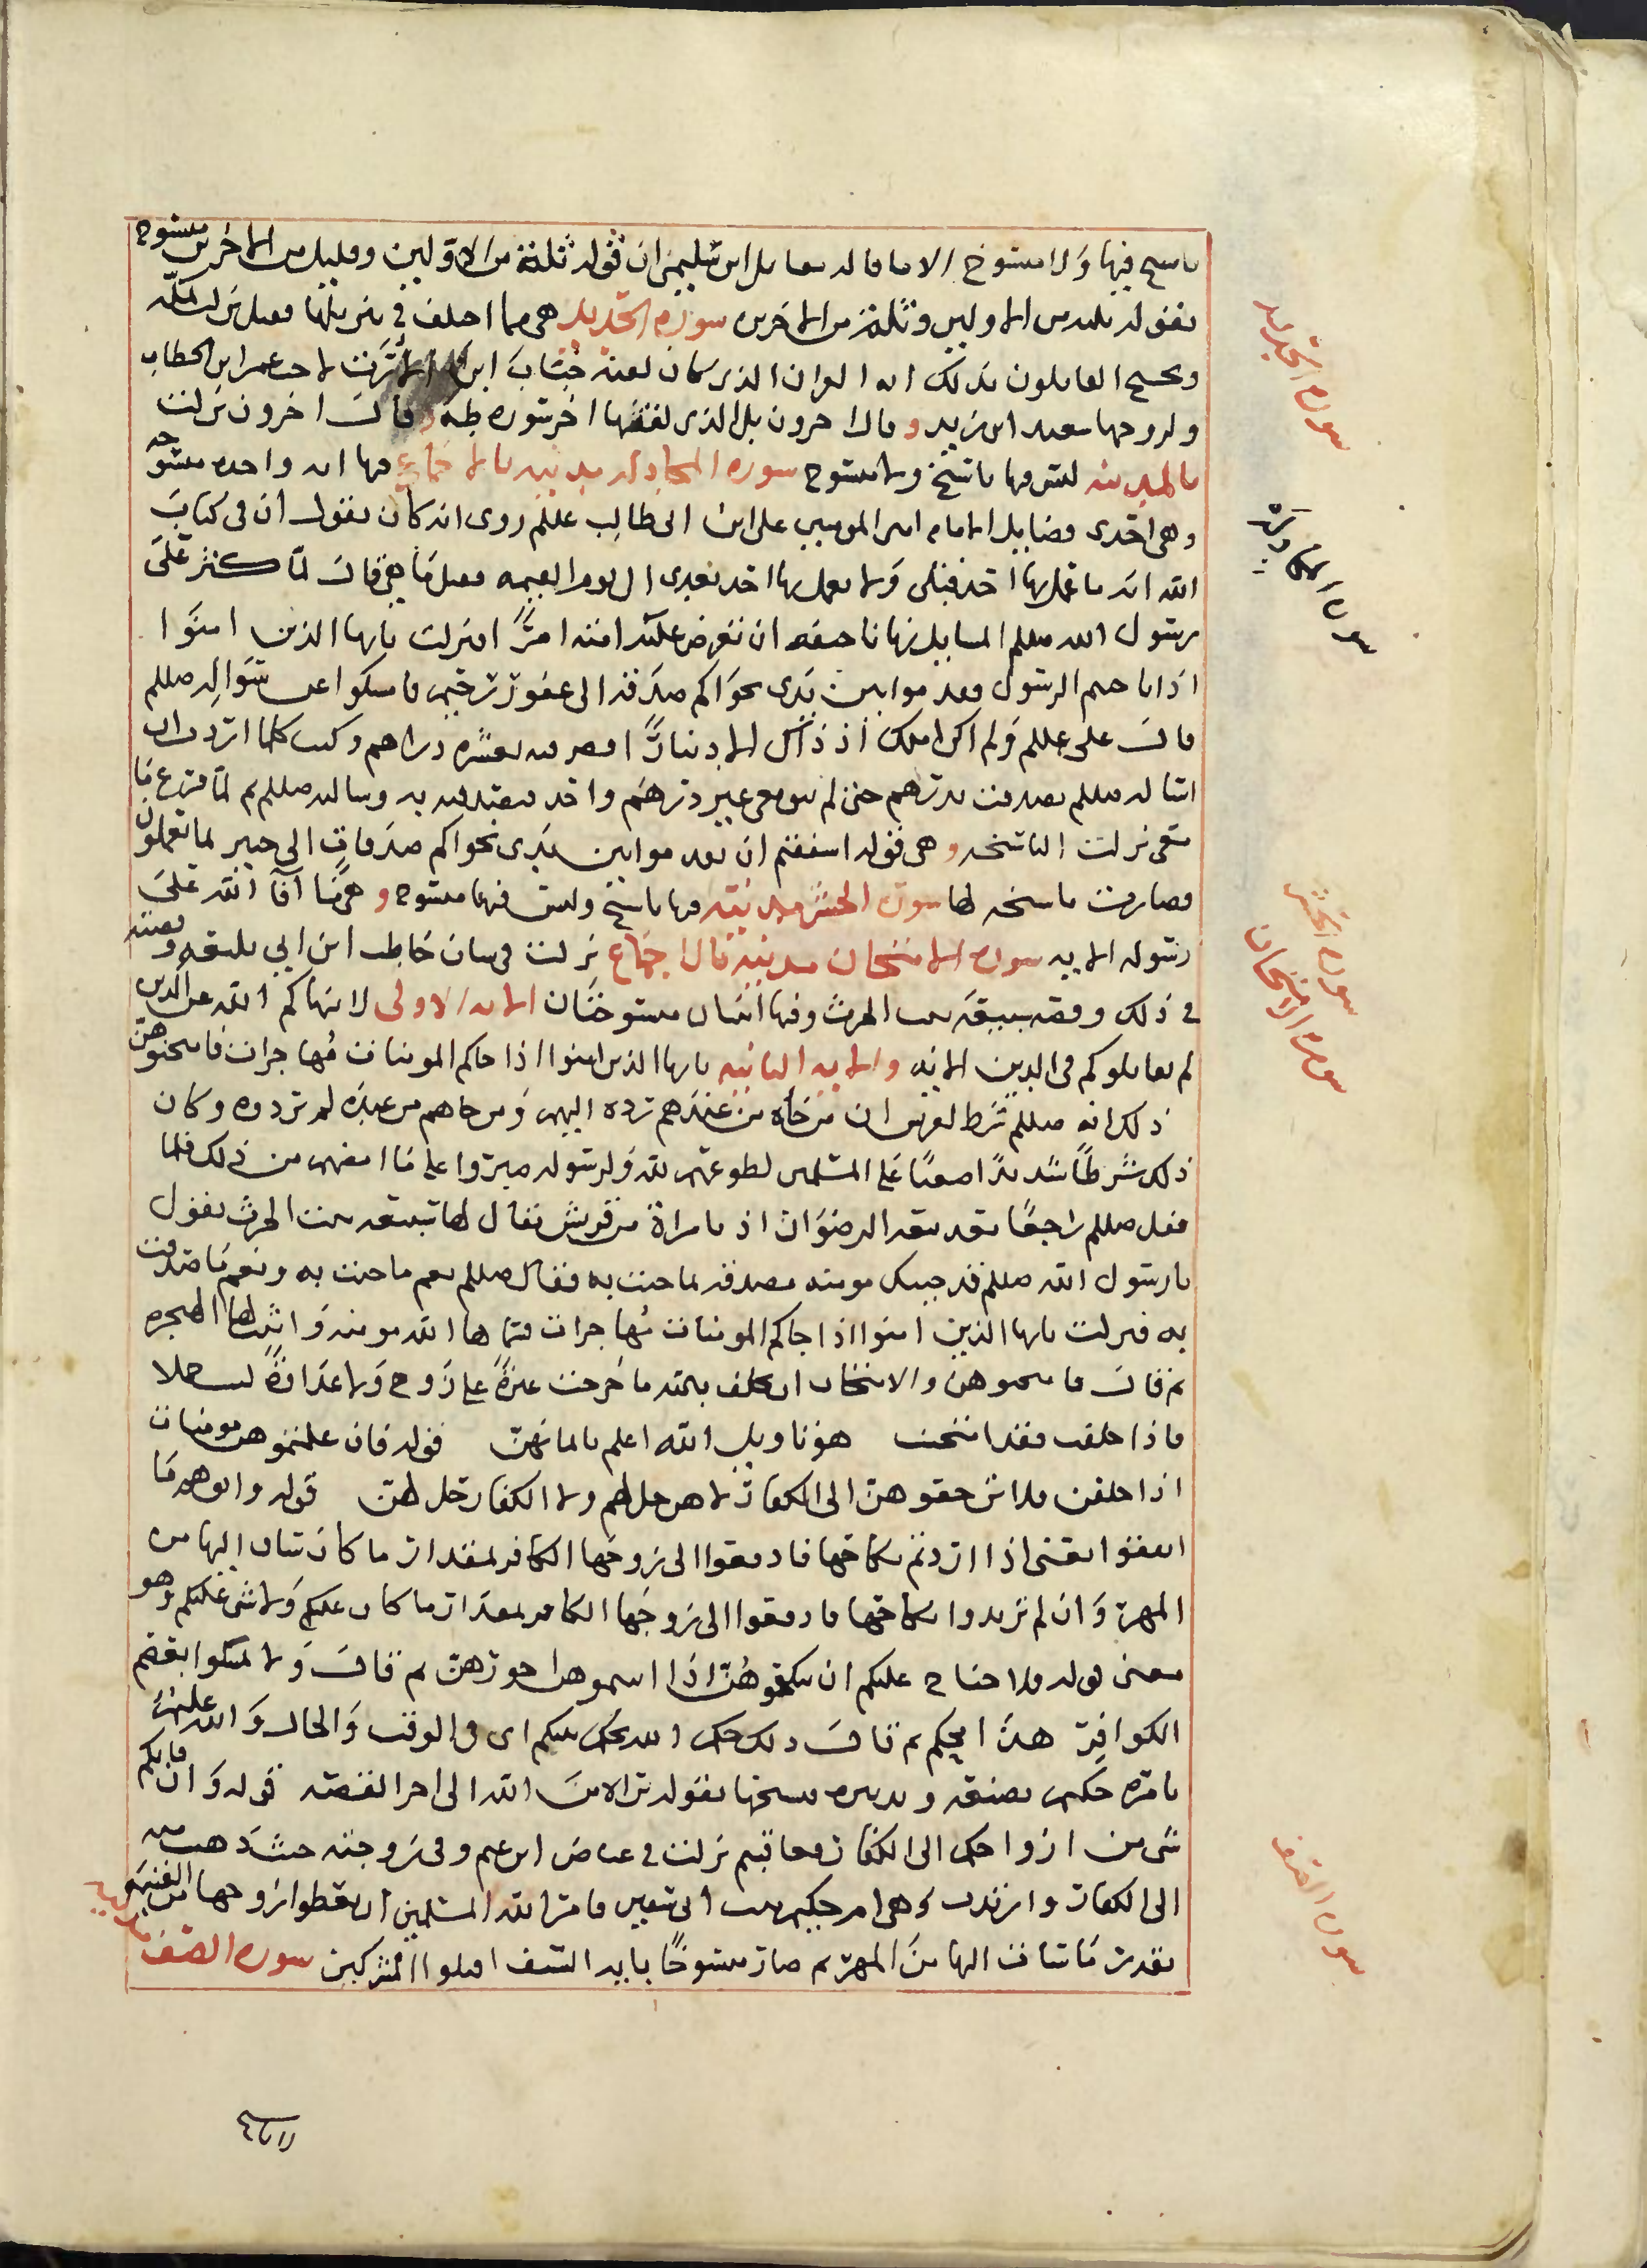 ناسخ فيها ولا منسوخ الا ما قاله مقاتل ابن سليمن ان قوله ثلة من الاولين وقليل من الاخرين منسوخ
بقوله ثلة من الاولين وثلة من الاخرين سورة الحديد هي مما اختلف في تنزيلها فقيل نزلت بمكة
ويحتج القائلون بذلك انه القران الذي كان لقنه خباب ابن الارت لاخت عمر ابن الخطاب
ولزوجها سعيد ابن زيد وقال اخرون بل الذي لقنها اخر سورة طه وقال اخرون نزلت
بالمدينة ليس فيها ناسخ ولا منسوخ سورة المجادلة مدنية بالاجماع فيها اية واحدة منسوخة
وهي احدى فضايل الامام امير المومنين علي ابن ابي طالب عللم روى انه كان يقول ان في كتاب
الله اية ما عمل بها احد قبلي ولا يعمل بها احد بعدي الى يوم القيمه فقيل ما هي قال لما كثر على
رسول الله صللم المسايل نهانا خيفة ان تفرض على امته امرا انزلت يايها الذين امنوا
اذا ناجيتم الرسول فقدموا بين يدي نجواكم صدقة الى غفور رحيم فامسكوا عن سواله صللم
قال علي عللم ولم اكن املك اذ ذاك الا دينارا فصرفته بعشرة دراهم وكنت كلما اردت ان
اساله صللم تصدقت بدرهم حتى لم يبق معي غير درهم واحد فتصدقت به وسالته صللم ثم لما فرغ ما
معي نزلت الناسخة وهي قوله اشفقتم ان تقدموا بين يدي نجواكم صدقات الى خبير بما تعملون
فصارت ناسخة لها سورة الحشر مدنية فيها ناسخ وليس فيها منسوخ وهي ما افا الله على
رسوله الاية سورة الامتحان مدنية بالاجماع نزلت في شان حاطب ابن ابي بلتعة وقصته
في ذلك وقصة سبيعة بنت الحرث وفيها ايتان منسوختان الاية الاولى لا ينهاكم الله عن الذين
لم يقاتلوكم في الدين الاية والاية الثانية يايها الذين امنوا اذا جاكم المومنات مهاجرات فامتحنوهن
ذلك انه صللم شرط لقريش ان من جاه من عندهم رده اليهم ومن جاهم من عنده لم تردوه وكان
ذلك شرطا شديدا صعبا على المسلمين لطوعهم لله ولرسوله صبروا على ما امضهم من ذلك فلما
قفل صللم راجعا بعد بيعة الرضوان اذ بامراة من قريش يقال لها سبيعة بنت الحرث تقول
يا رسول الله صللم قد جيتك مومنة مصدقة لما جيت به فقال صللم نعم ما جيت به ونعم ما صدقت
به فنزلت يايها الذين امنوا اذا جاكم المومنات مهاجرات فسماها الله مومنة واثبت لها الهجرة
ثم قال فامتحنوهن والامتحان ان تحلف بالله ما خرجت غيرة على زوج ولا عداوة
فاذا حلفت فقد امتحنت هو تاويل الله اعلم بايمانهن قوله فان علمتموهن مومنات
اذا حلفن فلا ترجعوهن الى الكفار لا هن حل لهم ولا الكفار حل لهن قوله واتوهم ما
انفقوا يعني اذا اردتم نكاحها فادفعوا الى زوجها الكافر بمقدار ما كان ساق اليها من
المهر وان لم تريدوا نكاحها فادفعوا الى زوجها الكافر بمقدار ما كان عليكم ولا شي عليكم وهو
معنى قوله فلا جناح عليكم ان تنكحوهن اذا اتيتموهن اجورهن ثم قال ولا تمسكوا بعصم
الكوافر هذا امحكم ثم قال ذلك حكم الله يحكم بينكم اي في الوقت والحال والله عليم
بامره حكيم بصنعه وتدبيره فنسخها بقوله براة من الله الى اخر القصة قوله وان فاتكم
شي من ازواجكم الى الكفار فعاقبتم نزلت في عياض ابن غنم وفي زوجته حيث ذهبت
الى الكفار وارتدت وهي ام حكيم بنت ابي سفين فامر الله المسلمين ان يعطوا زوجها من الغنيمة
بقدر ما ساق اليها من المهر ثم صار منسوخا باية السيف اقتلوا المشركين سورة الصف
سورة الحديد
سورة المجادلة
سورة الحشر
سورة الامتحان
سورة الصف